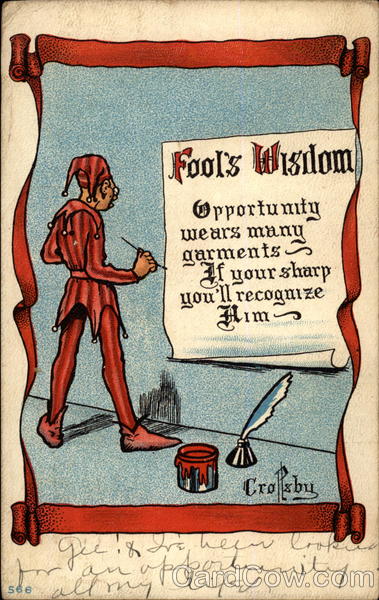 Fool's Wisdom
Opportunity
wears many
garments~
If your sharp
you'll recognize
Him~
Crossby
Gee! I've been looking
for an opportunity
all my
566
CardCow.com